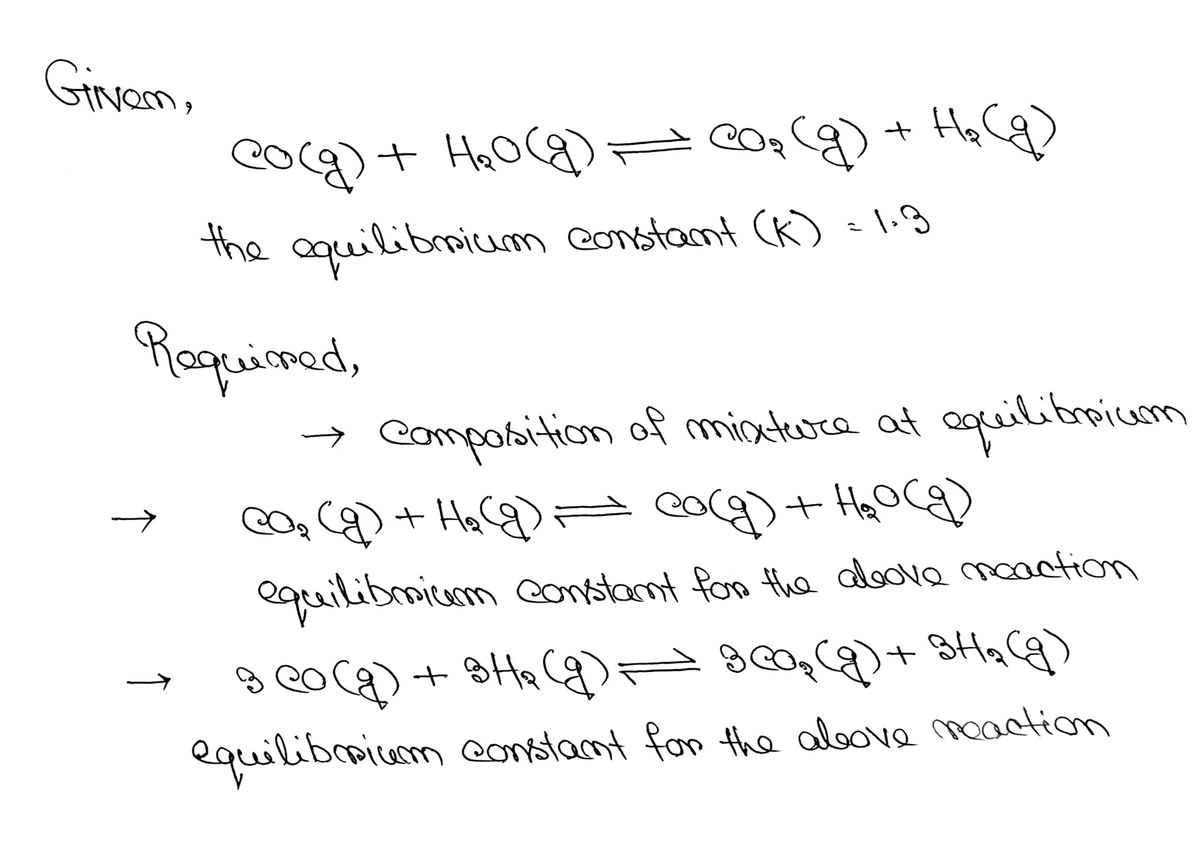 Given,
CO(g) + H₂O(g) ⇌ CO₂(g) + H₂(g)
the equilibrium constant (K) = 1.3
Required,
→ Composition of mixture at equilibrium
→ CO₂(g) + H₂(g) ⇌ CO(g) + H₂O(g)
equilibrium constant for the above reaction
→ 3CO(g) + 3H₂(g) ⇌ 3CO₂(g) + 3H₂(g)
equilibrium constant for the above reaction